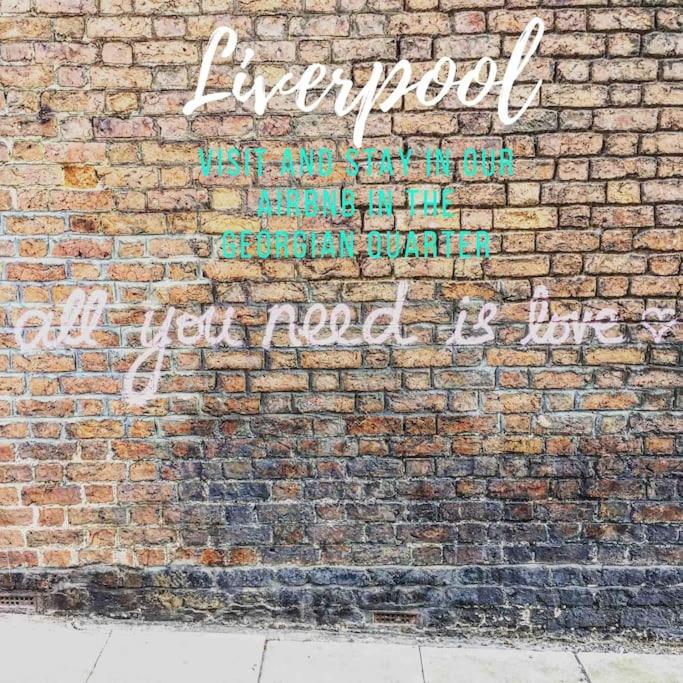 Liverpool
VISIT AND STAY IN OUR
AIRBNB IN THE
GEORGIAN QUARTER
all you need is love ♡